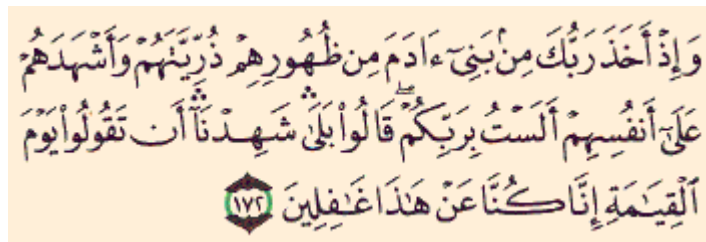 وَإِذۡ أَخَذَ رَبُّكَ مِنۢ بَنِيٓ ءَادَمَ مِن ظُهُورِهِمۡ ذُرِّيَّتَهُمۡ وَأَشۡهَدَهُمۡ
عَلَىٰٓ أَنفُسِهِمۡ أَلَسۡتُ بِرَبِّكُمۡۖ قَالُواْ بَلَىٰۛ شَهِدۡنَآۛ أَن تَقُولُواْ يَوۡمَ
ٱلۡقِيَٰمَةِ إِنَّا كُنَّا عَنۡ هَٰذَا غَٰفِلِينَ ١٧٢